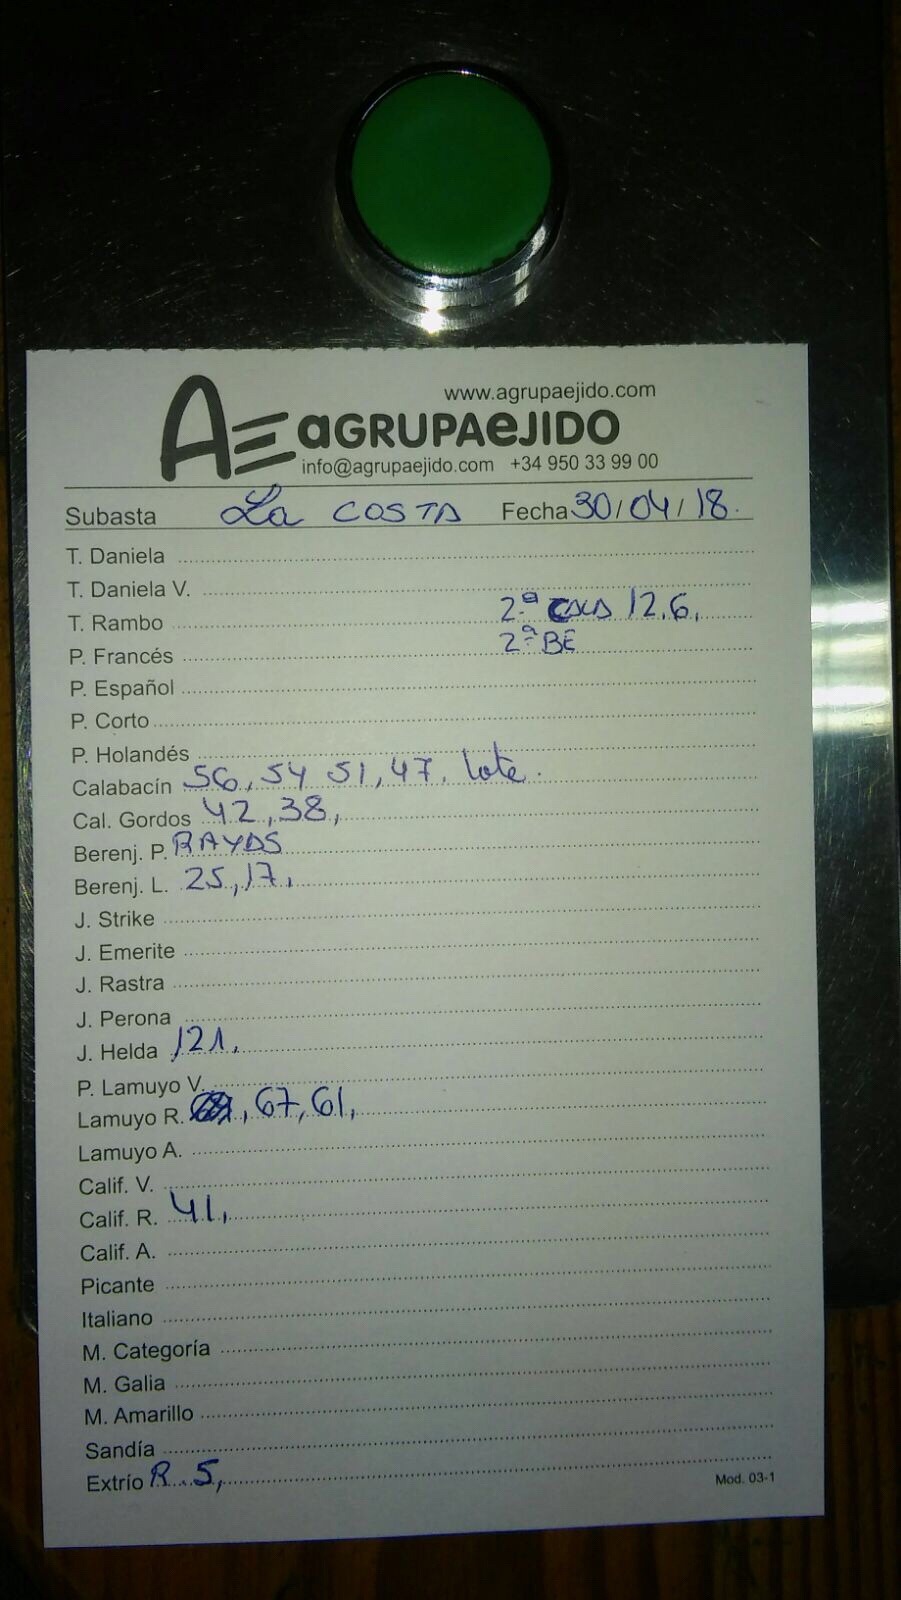 www.agrupaejido.com
AE aGRUPAeJIDO
info@agrupaejido.com +34 950 33 99 00
Subasta La COSTA Fecha 30/04/18.
T. Daniela
T. Daniela V.
T. Rambo 2ª 12,6,
P. Francés 2ª BE
P. Español
P. Corto
P. Holandés
Calabacín 56, 54 51, 47. lote.
Cal. Gordos 42, 38,
Berenj. P. RAYDS
Berenj. L. 25, 17,
J. Strike
J. Emerite
J. Rastra
J. Perona
J. Helda 121,
P. Lamuyo V.
Lamuyo R. , 67, 61,
Lamuyo A.
Calif. V.
Calif. R. 41,
Calif. A.
Picante
Italiano
M. Categoría
M. Galia
M. Amarillo
Sandía
Extrío R. 5,
Mod. 03-1